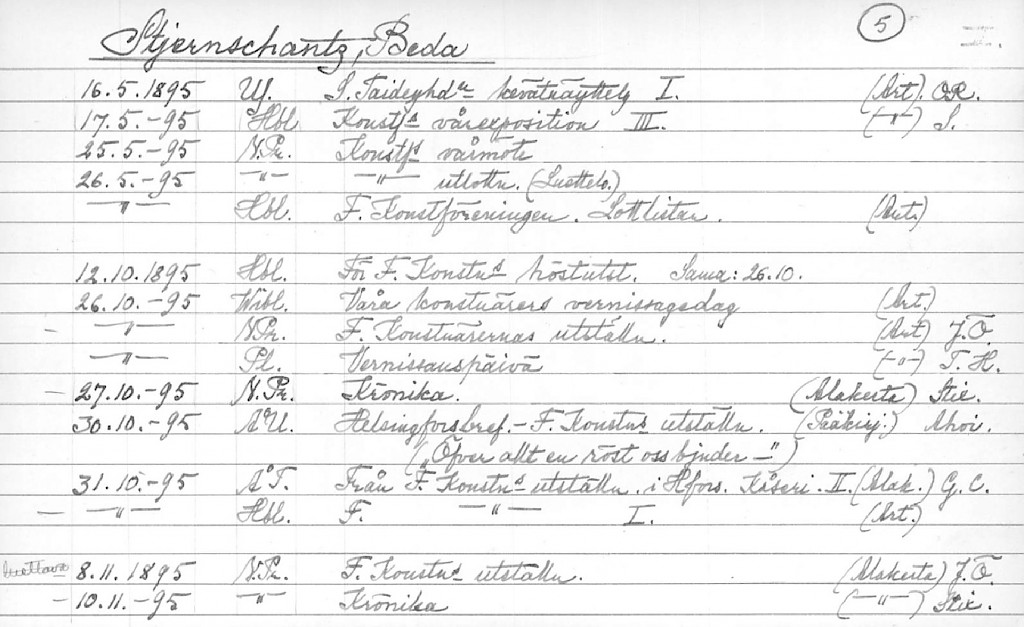 5
Stjernschantz, Beda
16.5.1895 Uf. S. Taideyhd:n kevätnäyttely I. (Art). O.R.
17.5.-95 Hbl Konstf:s vårexposition III. (-"-) S.
25.5.-95 N.Pr. Konstf:s vårmöte
26.5.-95 -"- -"- utlottn. (Luettelo.)
-"- Hbl. F. Konstföreningen. Lottlistan. (Art.)
12.10.1895 Hbl. För F. Konstn:s höstutst. Sama: 26.10.
26.10.-95 Wibl. Våra konstnärers vernissagedag (Art.)
- -"- N.Pr. F. Konstnärernas utställn. (Art) J.Ö.
-"- Pl. Vernissauspäivä (-"-) T.H.
- 27.10.-95 N.Pr. Krönika. (Alakerta) Stie.
30.10.-95 ÅU. Helsingforsbref.- F. Konstn:s utställn. (Pääkirj.) Ahoi.
("Öfver allt en röst oss bjuder -")
31.10.-95 Å T. Från F. Konstn:s utställn. i Hfors. Kåseri. II. (Alak.) G.C.
- -"- Hbl. F. -"- I. (Art.)
8.11.1895 N.Pr. F. Konstn:s utställn. (Alakerta) J.Ö.
- 10.11.-95 -"- Krönika (-"-) Stie.